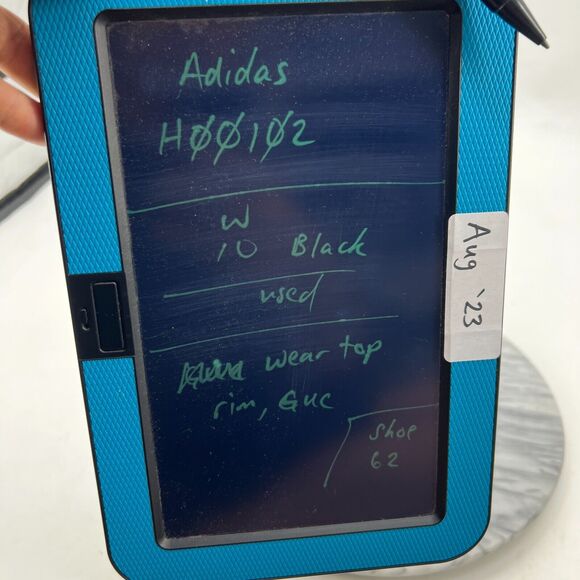 Adidas
HØØ1Ø2
W
10 Black
used
wear top
rim, GUC
Shoe
62
Aug '23